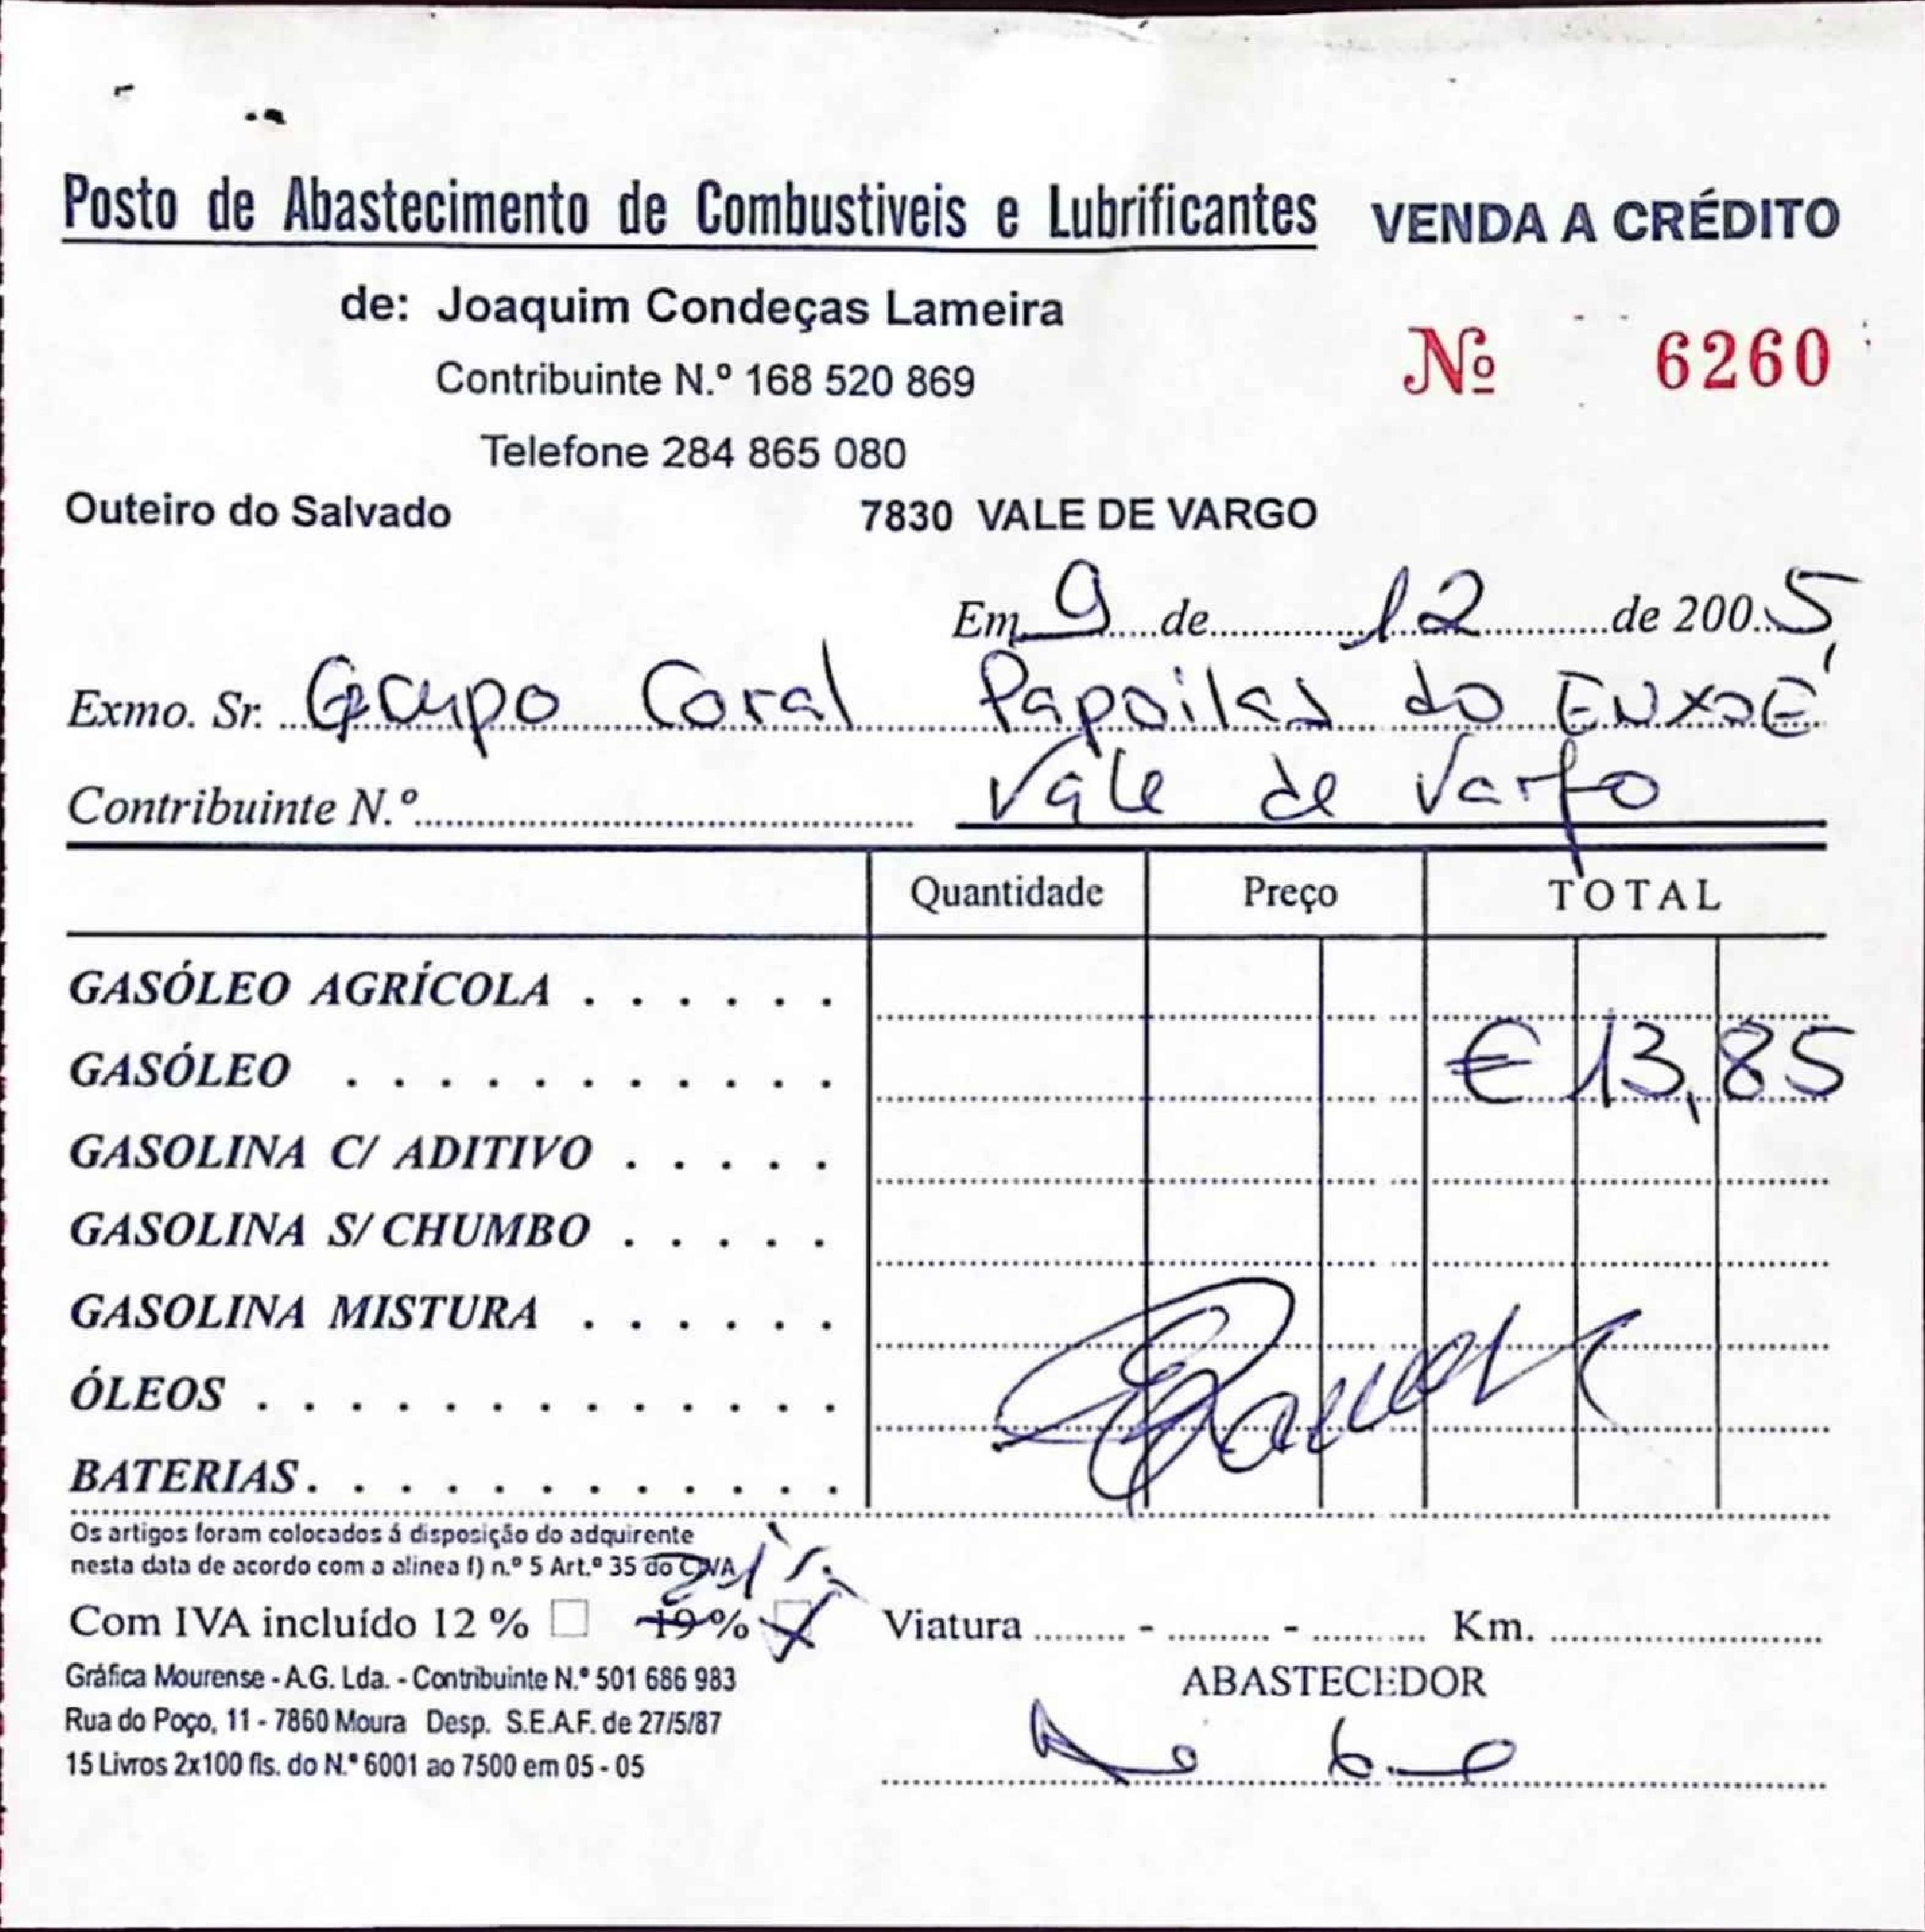 Posto de Abastecimento de Combustiveis e Lubrificantes VENDA A CRÉDITO
de: Joaquim Condeças Lameira
Contribuinte N.º 168 520 869
Nº 6260
Telefone 284 865 080
Outeiro do Salvado 7830 VALE DE VARGO
Em 9 de 12 de 2005
Exmo. Sr. Grupo Coral Papoilas do ENXOÉ
Contribuinte N.º Vale de Vargo
Quantidade Preço TOTAL
GASÓLEO AGRÍCOLA
GASÓLEO € 13,85
GASOLINA C/ ADITIVO
GASOLINA S/ CHUMBO
GASOLINA MISTURA
ÓLEOS
BATERIAS
Os artigos foram colocados á disposição do adquirente
nesta data de acordo com a alinea f) n.º 5 Art.º 35 do CIVA
21%
Com IVA incluído 12 % 19 % Viatura - - Km.
Gráfica Mourense - A.G. Lda. - Contribuinte N.º 501 686 983
ABASTECEDOR
Rua do Poço, 11 - 7860 Moura Desp. S.E.A.F. de 27/5/87
15 Livros 2x100 fls. do N.º 6001 ao 7500 em 05 - 05